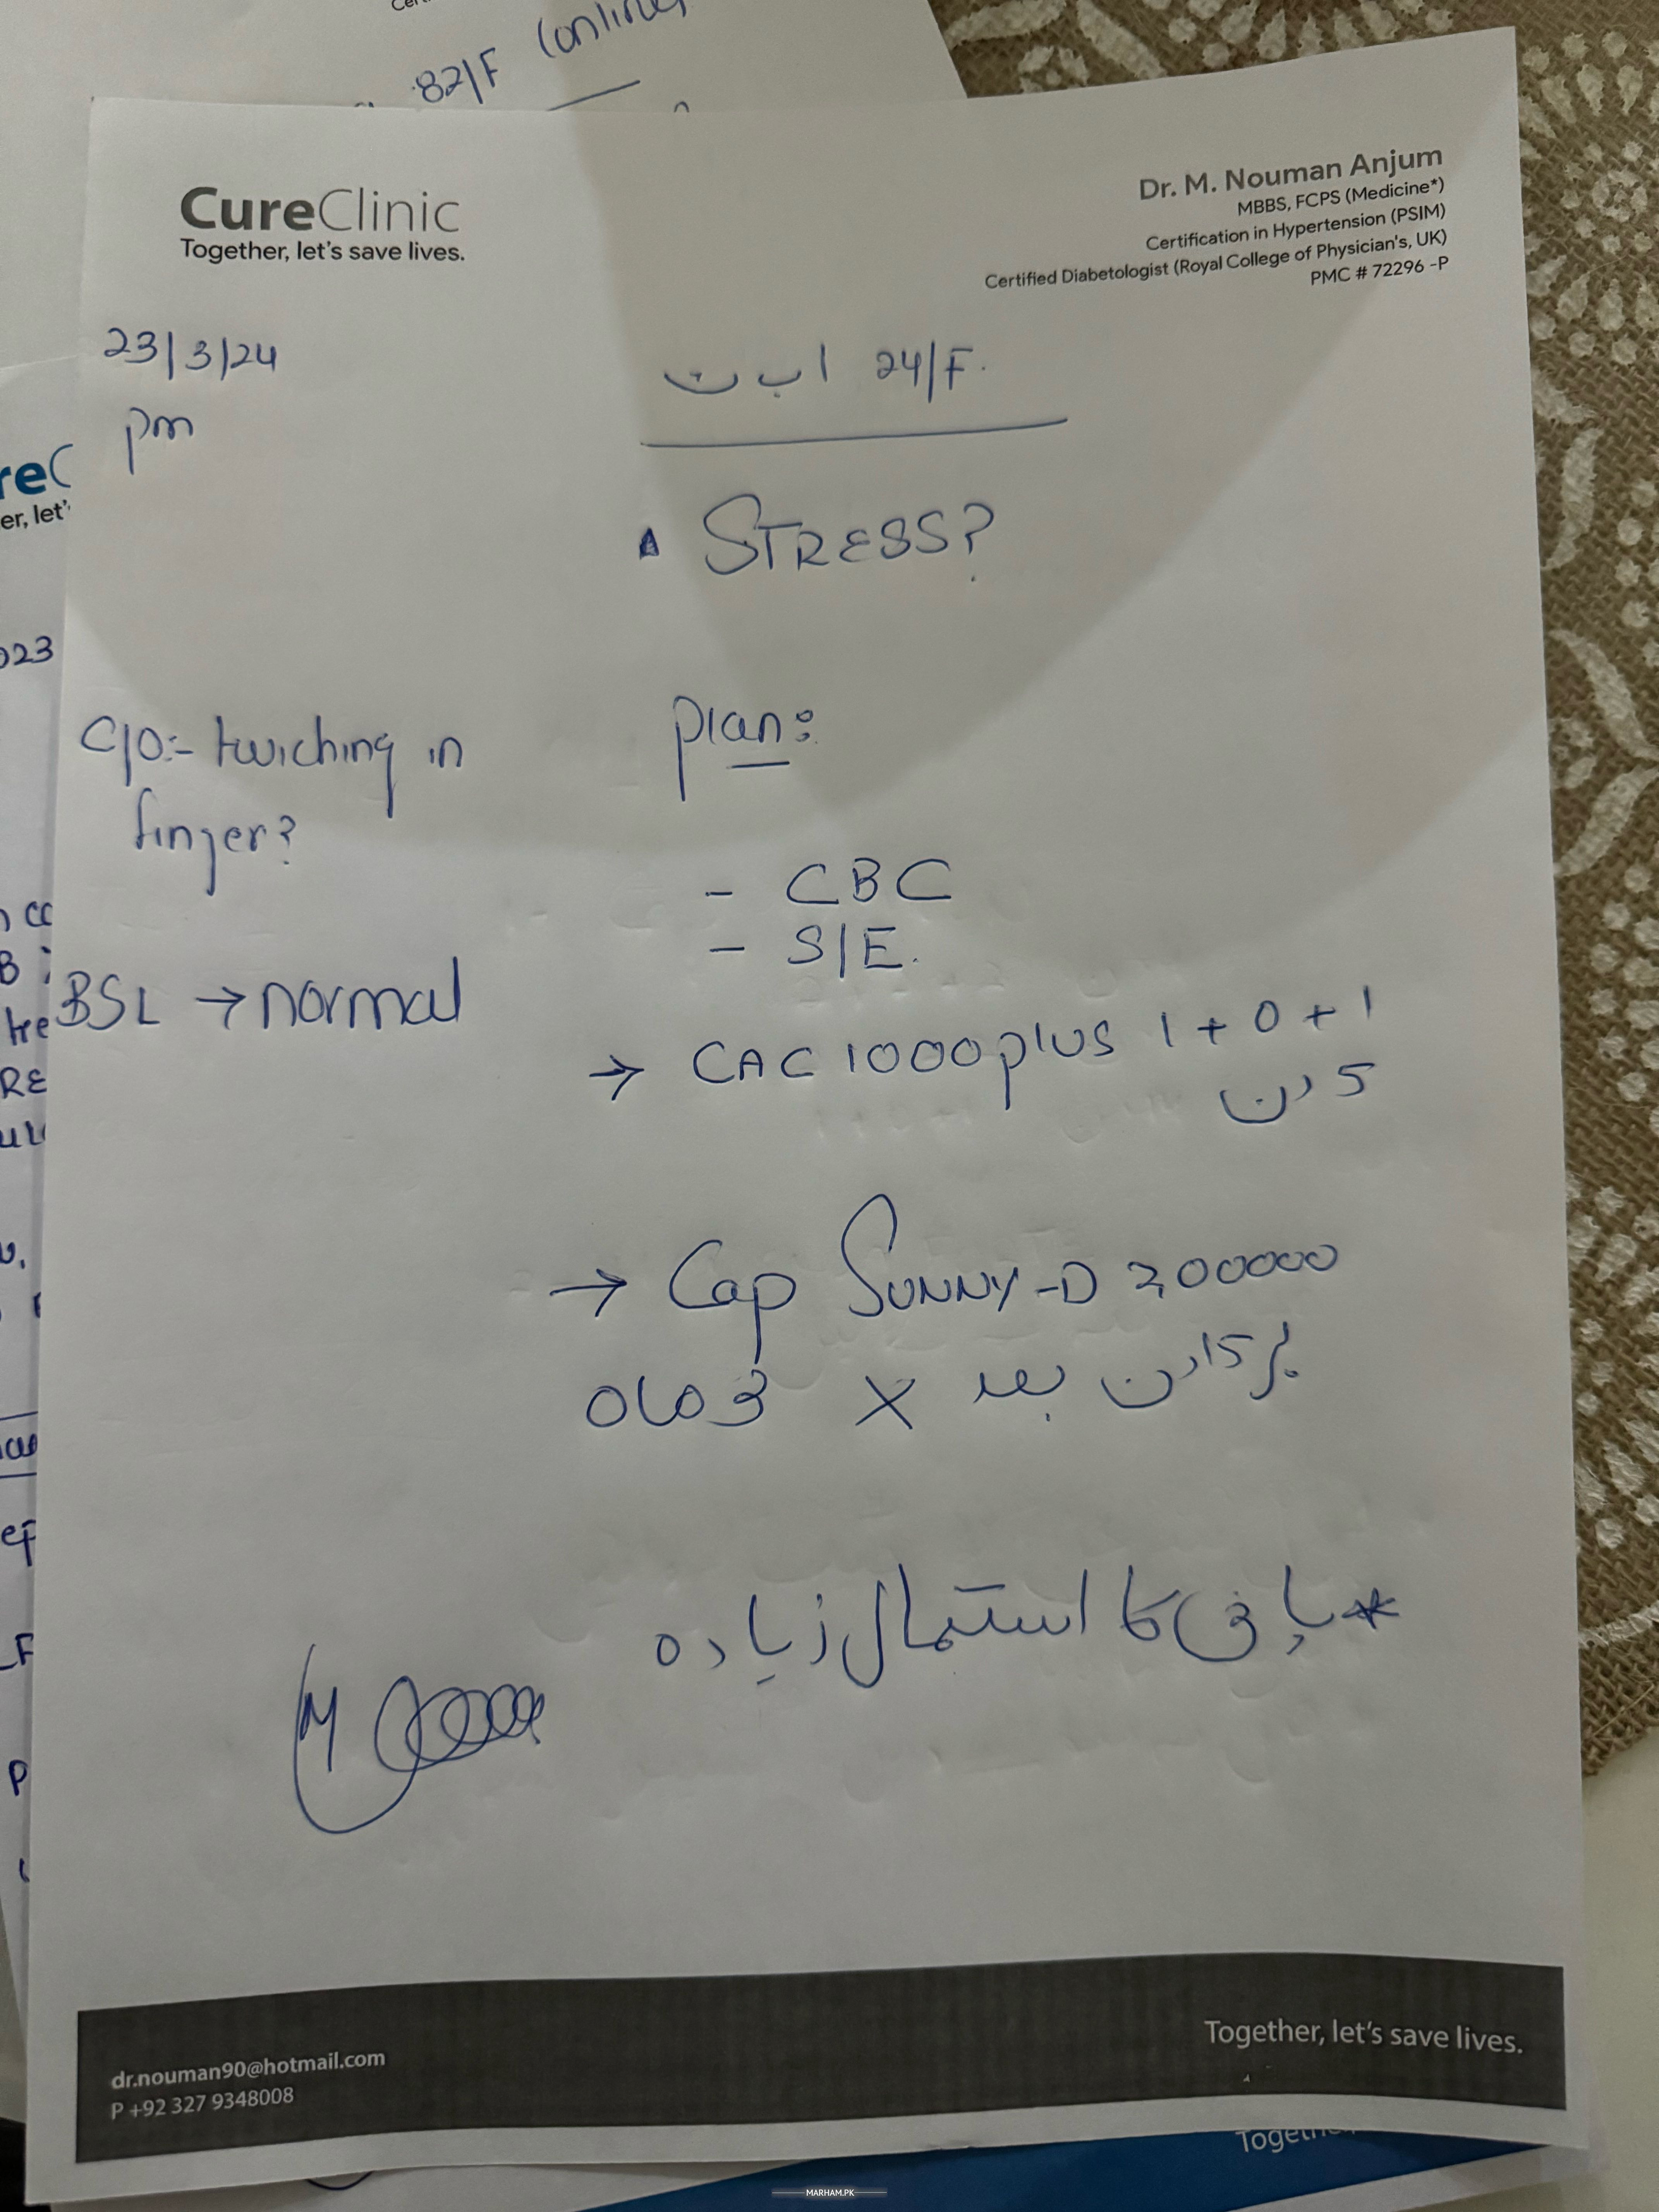 82/F (online)
CureClinic
Together, let's save lives.
Dr. M. Nouman Anjum
MBBS, FCPS (Medicine*)
Certification in Hypertension (PSIM)
Certified Diabetologist (Royal College of Physician's, UK)
PMC # 72296 -P
23/3/24
pm
ا ب ت 24/F.
STRESS?
C/O:- twiching in
finger?
BSL → normal
plan:
- CBC
- S/E.
→ CAC 1000 plus 1 + 0 + 1
5 دن
→ Cap SUNNY-D 200000
ہر 15 دن بعد x 3 ماہ
* پانی کا استمال زیادہ
reC
er, let'
023
dr.nouman90@hotmail.com
P +92 327 9348008
Together, let's save lives.
MARHAM.PK